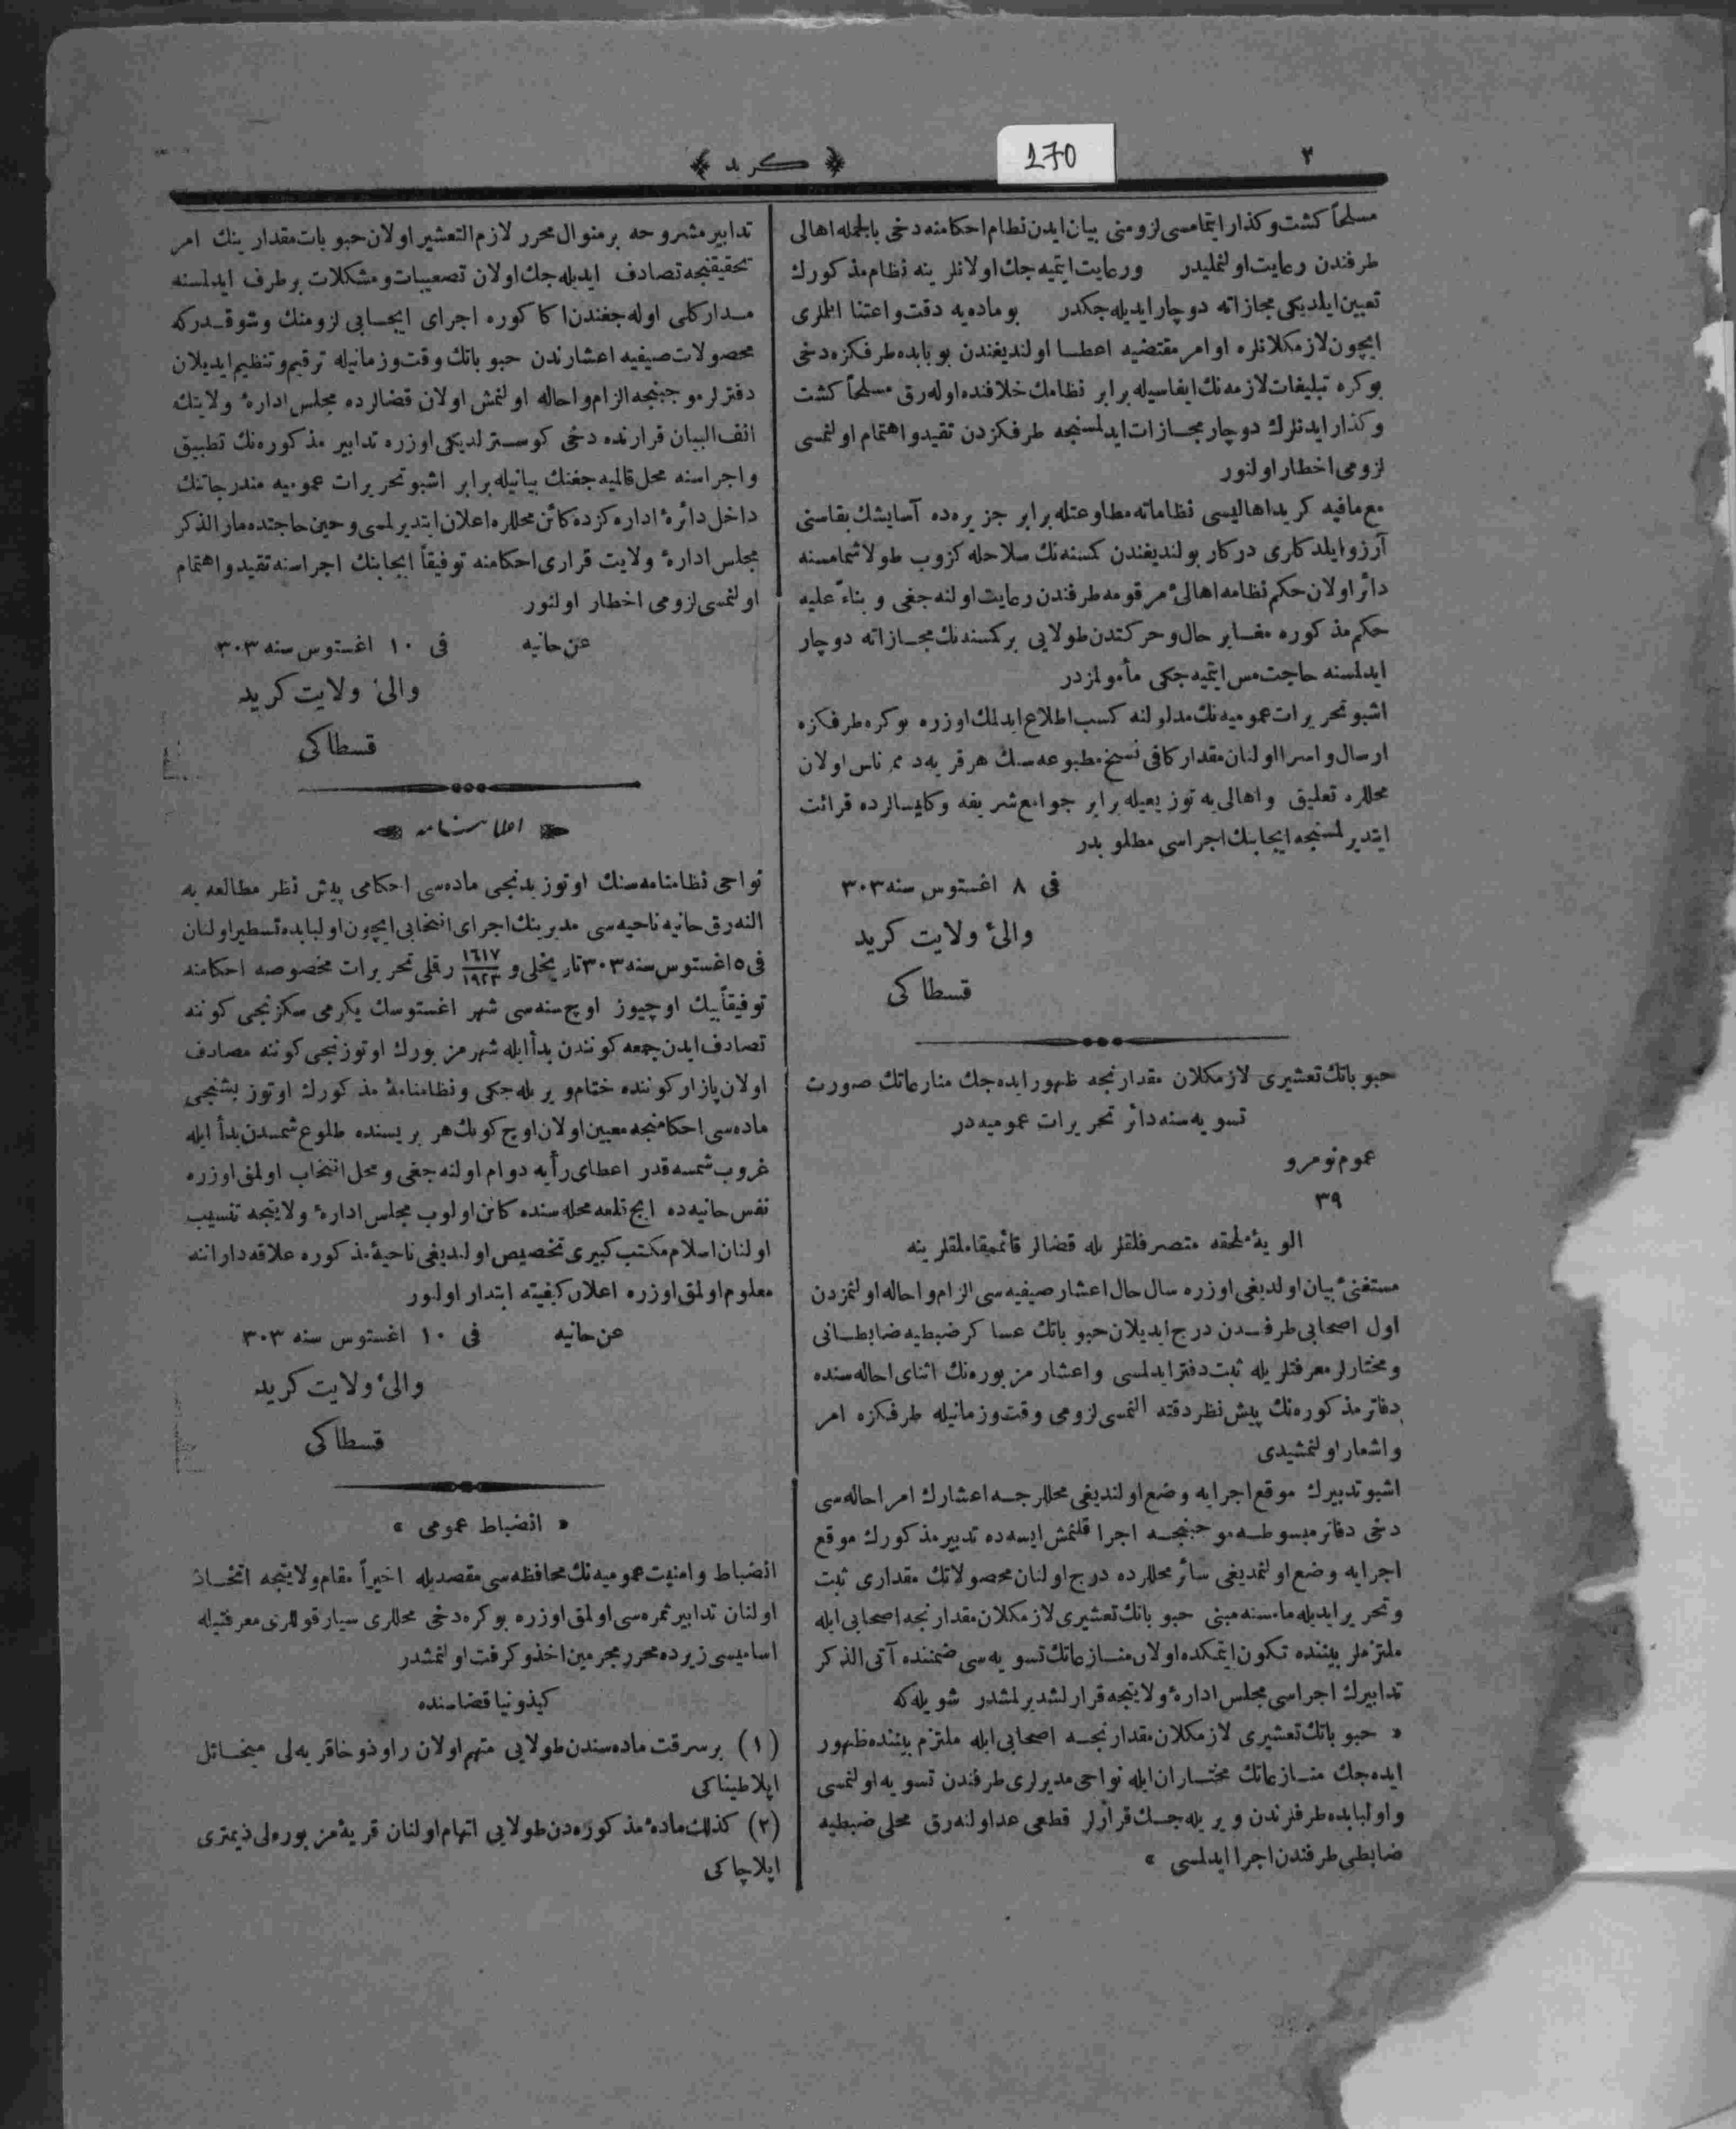 ٢
﴿ كريد ﴾
270
مسلحاً كشت و كذار ايتمامسى لزومنى بيان ايدن نظام احكامنه دخى بالجمله اهالى
طرفندن رعايت اولنمليدر ورعايت ايتميه جك اولانلر ينه نظام مذكورك
تعيين ايلديكى مجازاته دوچار ايديله جكدر بو ماده يه دقت و اعتنا ايللرى
ايچون لازمكلانلره اوامر مقتضيه اعطا اولنديغندن بو بابده طرفكزه دخى
بوكره تبليغات لازمه نك ايفاسيله برابر نظامك خلافنده اوله رق مسلحاً كشت
وكذار ايدنلرك دوچار مجازات ايدلمسنجه طرفكزدن تقيد و اهتمام اولنمسى
لزومى اخطار اولنور
مع مافيه كريد اهاليسى نظاماته مطاوعتله برابر جزيره ده آسايشك بقاسنى
آرزو ايلدكلرى دركار بولنديغندن كمسنه نك سلاحله كزوب طولاشمامسنه
دائر اولان حكم نظامه اهالئ مرقومه طرفندن رعايت اولنه جغى و بناءً عليه
حكم مذكوره مغاير حال و حركتدن طولايى بر كمسنه نك مجازاته دوچار
ايدلمسنه حاجت مس ايتميه جكى مأمولمزدر
اشبو تحريرات عموميه نك مدلولنه كسب اطلاع ايدلمك اوزره بوكره طرفكزه
ارسال و اسرا اولنان مقدار كافى نسخ مطبوعه سنك هر قريه ده ممر ناس اولان
محللره تعليق و اهالى يه توزيعيله برابر جوامع شريفه و كليسالرده قرائت
ايتديرلمسنجه ايجابنك اجراسى مطلوبدر
فى ٨ اغستوس سنه ٣٠٣
والئ ولايت كريد
قسطاكى
حبوباتك تعشيرى لازمكلان مقدارنجه ظهور ايده جك منازعاتك صورت
تسويه سنه دائر تحريرات عموميه در
عموم نومرو
٣٩
الويۀ ملحقه متصرفلقلريله قضالر قائمقاملقلرينه
مستغنئ بيان اولديغى اوزره سال حال اعشار صيفيه سى الزام و احاله اولنمزدن
اول اصحابى طرفندن درج ايديلان حبوباتك عساكر ضبطيه ضابطانى
و مختارلر معرفتلريله ثبت دفتر ايدلمسى و اعشار مزبوره نك اثناى احاله سنده
دفاتر مذكوره نك پيش نظر دقته النمسى لزومى وقت و زمانيله طرفكزه امر
و اشعار اولنمشيدى
اشبو تدبيرك موقع اجرايه وضع اولنديغى محللرجه اعشارك امر احاله سى
دخى دفاتر مبسوطه موجبنجه اجرا قلنمش ايسه ده تدبير مذكورك موقع
اجرايه وضع اولنمديغى سائر محللرده درج اولنان محصولاتك مقدارى ثبت
و تحرير ايديله مامسنه مبنى حبوباتك تعشيرى لازمكلان مقدارنجه اصحابى ايله
ملتزملر بيننده تكون ايتمكده اولان منازعاتك تسويه سى ضمننده آتى الذكر
تدابيرك اجراسى مجلس ادارۀ ولايتجه قرارلشديرلمشدر شويله كه
« حبوباتك تعشيرى لازمكلان مقدارنجه اصحابى ايله ملتزم بيننده ظهور
ايده جك منازعاتك مختاران ايله نواحى مديرلرى طرفندن تسويه اولنمسى
و اولبابده طرفلرندن ويريله جك قرارلر قطعى عد اولنه رق محلى ضبطيه
ضابطى طرفندن اجرا ايدلمسى »
تدابير مشروحه بر منوال محرر لازم التعشير اولان حبوبات مقدارينك امر
تحقيقنجه تصادف ايديله جك اولان تصعيبات و مشكلات بر طرف ايدلمسنه
مدار كلى اوله جغندن اكا كوره اجراى ايجابى لزومنك و شوقدركه
محصولات صيفيه اعشارندن حبوباتك وقت و زمانيله ترقيم و تنظيم ايديلان
دفترلر موجبنجه الزام و احاله اولنمش اولان قضالرده مجلس ادارۀ ولايتك
انف البيان قرارنده دخى كوسترلديكى اوزره تدابير مذكوره نك تطبيق
و اجراسنه محل قالميه جغنك بيانيله برابر اشبو تحريرات عموميه مندرجاتنك
داخل دائرۀ اداره كزده كائن محللره اعلان ايتديرلمسى و حين حاجتده مار الذكر
مجلس ادارۀ ولايت قرارى احكامنه توفيقاً ايجابنك اجراسنه تقيد و اهتمام
اولنمسى لزومى اخطار اولنور
عن حانيه فى ١٠ اغستوس سنه ٣٠٣
والئ ولايت كريد
قسطاكى
اعلاننامه
نواحى نظامنامه سنك اوتوز يدنجى ماده سى احكامى پيش نظر مطالعه يه
النه رق حانيه ناحيه سى مديرينك اجراى انتخابى ايچون اولبابده تسطير اولنان
فى ٥ اغستوس سنه ٣٠٣ تاريخلى و ١٦١٧/١٩٢٣ رقملى تحريرات مخصوصه احكامنه
توفيقاً بيك اوچيوز اوچ سنه سى شهر اغستوسك يكرمى سكزنجى كوننه
تصادف ايدن جمعه كونندن بدأ ايله شهر مزبورك اوتوزنجى كوننه مصادف
اولان پازار كوننده ختام ويريله جكى و نظامنامۀ مذكورك اوتوز بشنجى
ماده سى احكامنجه معين اولان اوچ كونك هر بريسنده طلوع شمسدن بدأ ايله
غروب شمسه قدر اعطاى رأيه دوام اولنه جغى و محل انتخاب اولمق اوزره
نفس حانيه ده ايچ قلعه محله سنده كائن اولوب مجلس ادارۀ ولايتجه تنسيب
اولنان اسلام مكتب كبيرى تخصيص اولنديغى ناحيۀ مذكوره علاقه دارانه
معلوم اولمق اوزره اعلان كيفيته ابتدار اولنور
عن حانيه فى ١٠ اغستوس سنه ٣٠٣
والئ ولايت كريد
قسطاكى
« انضباط عمومى »
انضباط و امنيت عموميه نك محافظه سى مقصديله اخيراً مقام ولايتجه اتخاذ
اولنان تدابير ثمره سى اولمق اوزره بوكره دخى محللرى سيار قوللرى معرفتيله
اساميسى زيرده محرر مجرمين اخذ و كرفت اولنمشدر
كيذونيا قضاسنده
(١) بر سرقت ماده سندن طولايى متهم اولان راوذوخا قريه لى ميخائل
اپلاطيناكى
(٢) كذلك مادۀ مذكوره دن طولايى اتهام اولنان قريۀ مزبوره لى ذيمترى
اپلاچاكى